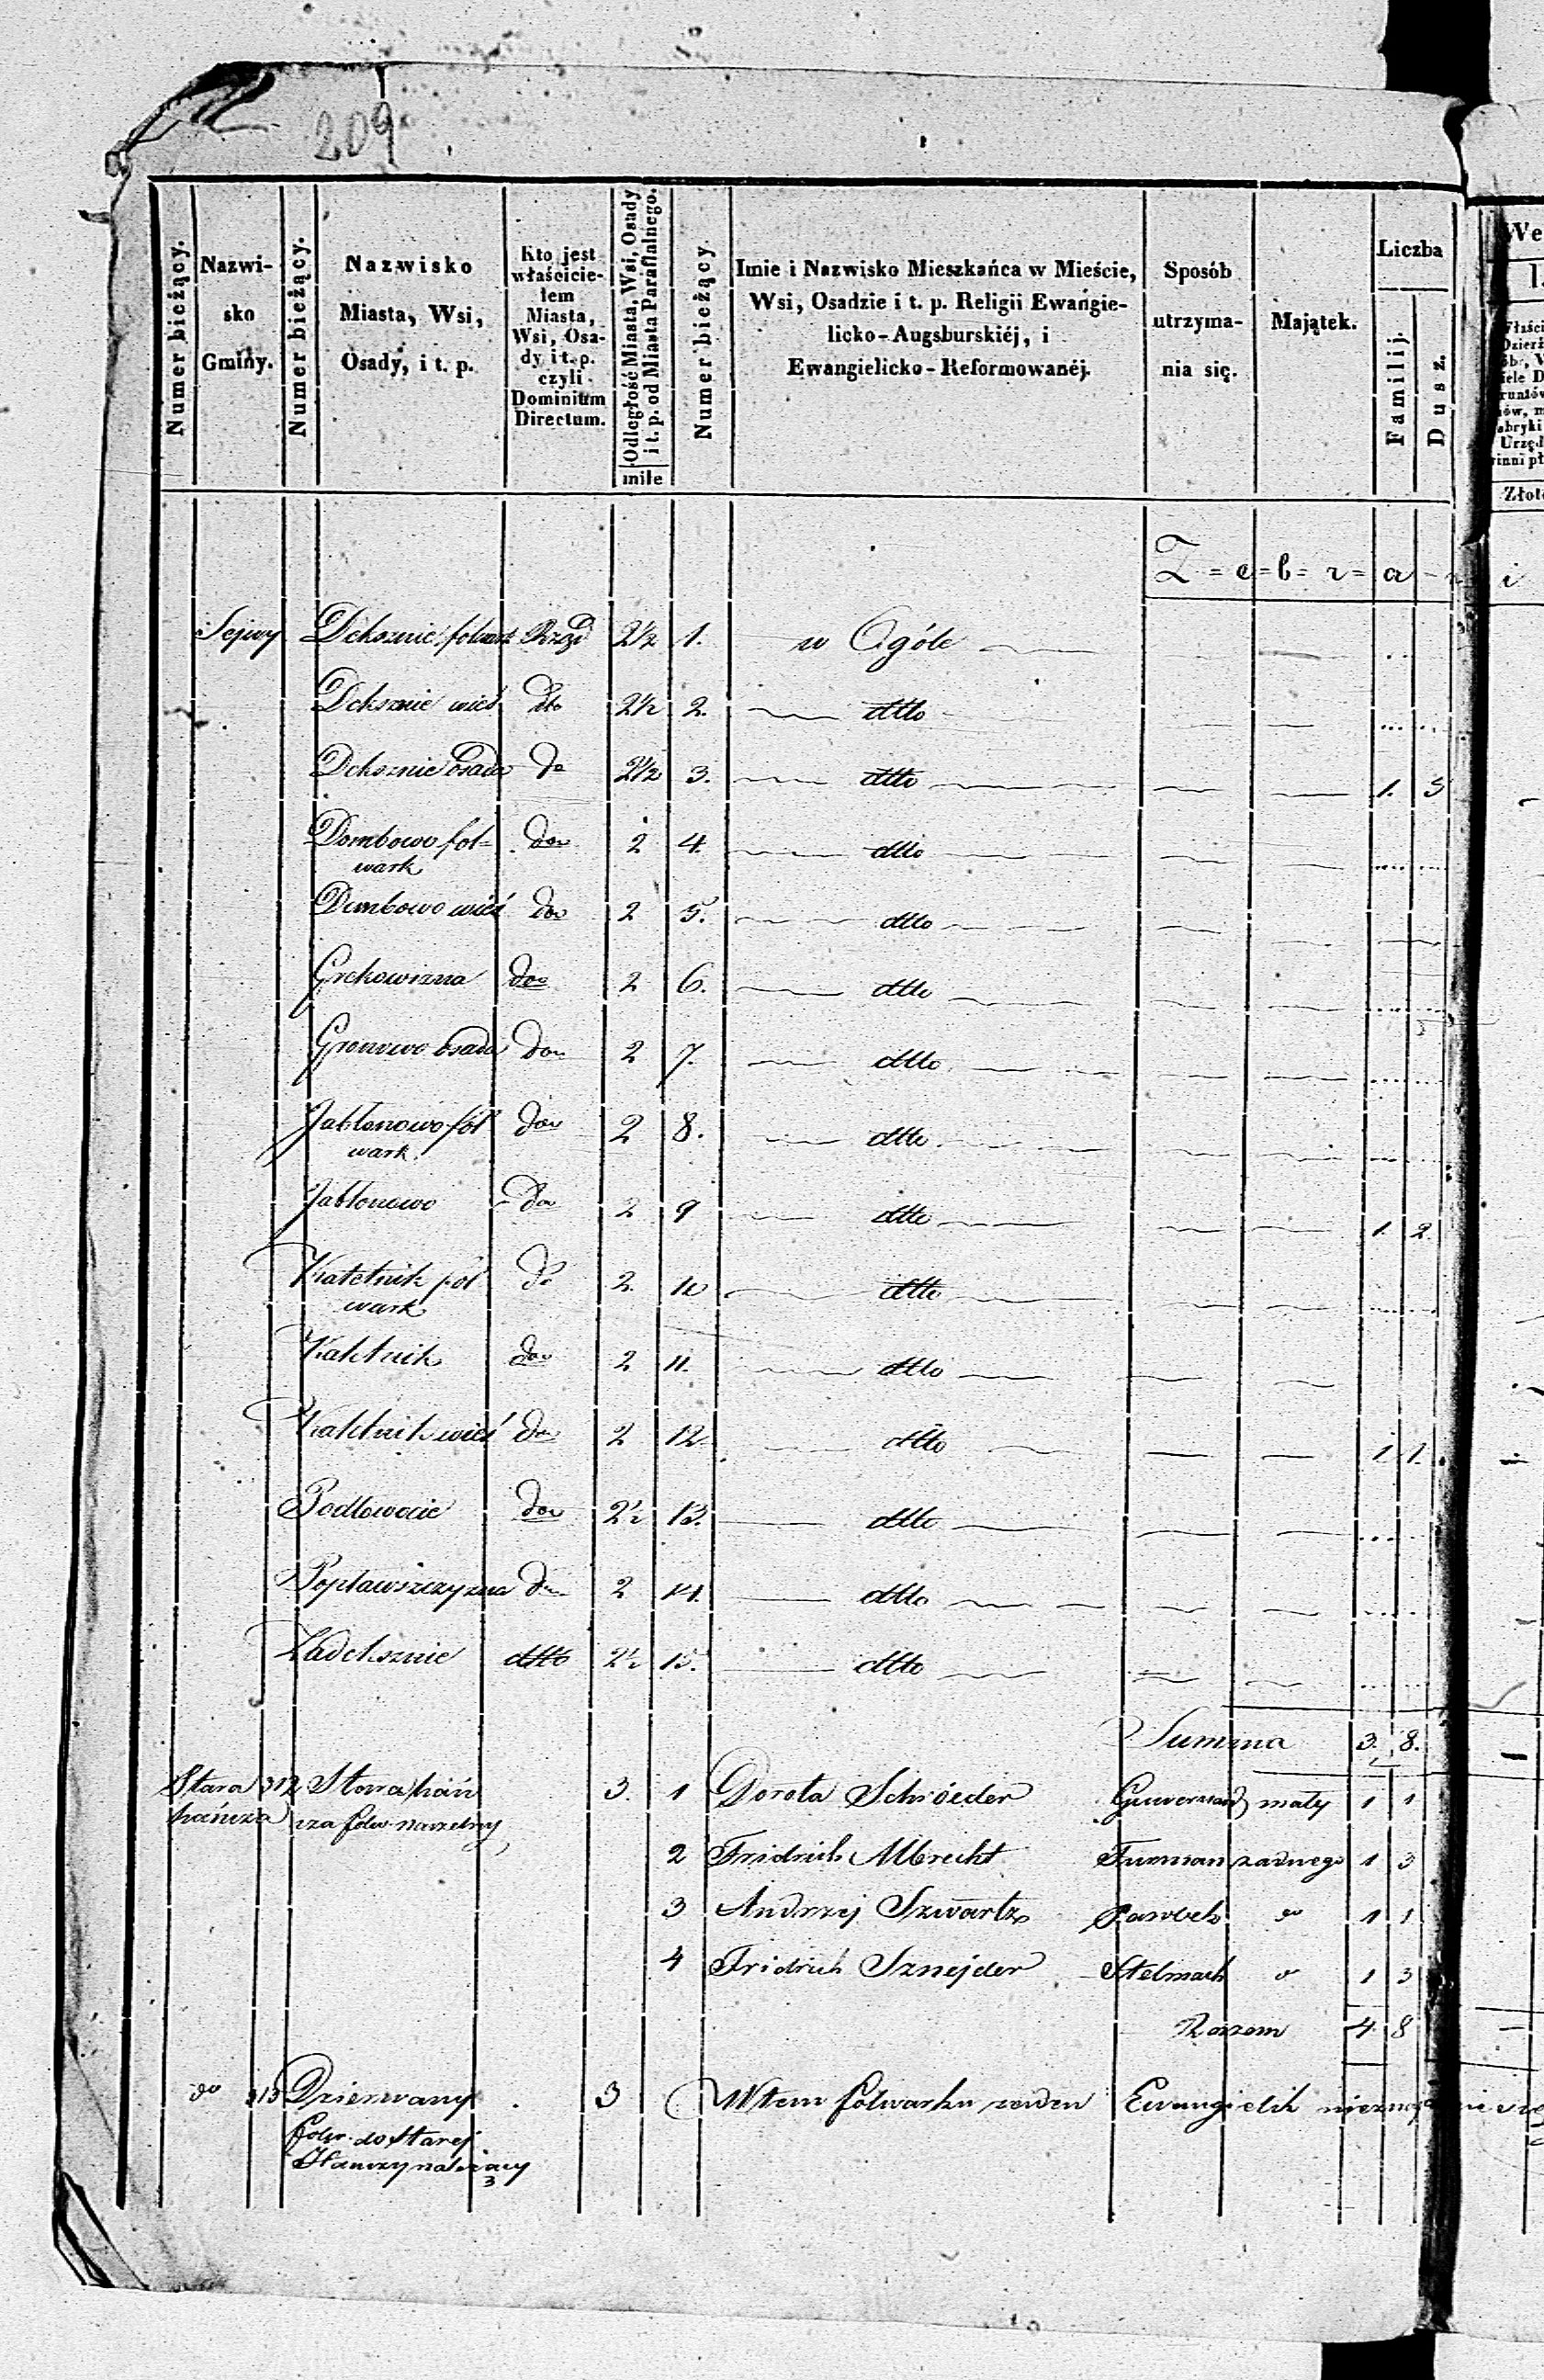 209
Numer bieżący.
Nazwi-
sko
Gminy.
Numer bieżący.
Nazwisko
Miasta, Wsi,
Osady, i t. p.
Kto jest
właścicie-
lem
Miasta,
Wsi, Osa-
dy i t. p.
czyli
Dominium
Directum.
Odległość Miasta, Wsi, Osady
i t. p. od Miasta Parafialnego.
mile
Numer bieżący.
Imie i Nazwisko Mieszkańca w Mieście,
Wsi, Osadzie i t. p. Religii Ewangie-
licko-Augsburskiéj, i
Ewangielicko-Reformowanéj.
Sposób
utrzyma-
nia się.
Majątek.
Liczba
Familij.
Dusz.
We
1.
Złot
Z=e=b=r=a=n i
Sejwy Deksznie folwark Rząd 2½ 1. w Ogóle
Deksznie wieś dto 2½ 2. dtto
Deksznie osada do 2½ 3. dtto 1. 5
Dombowo fol=
wark do 2 4. dtto
Dembowo wieś do 2 5. dtto
Grekowizna do 2 6. dtto
Gronowo osada do 2 7. dtto
Jabłonowo fol
wark do 2 8. dtto
Jabłonowo do 2 9 dtto 1. 2.
Kaletnik fol
wark do 2. 10 dtto
Kaletnik do 2 11. dtto
Kaletnik wieś do 2 12 dtto 1. 1.
Podłowocie do 2½ 13. dtto
Popławszczyzna do 2 14. dtto
Zadeksznie dtto 2½ 15. dtto
Summa 3. 8.
Stara 312 Stara hań 3. 1 Dorota Schröeder Guwernand mały 1 1
hańcza cza folw. naczelny
2 Fridrich Albrecht Furman żadnego 1 3
3 Andrzej Szwartz Parobek do 1 1
4 Fridrich Sznejder Stelmach do 1 3
Razem 4. 8
do 313 Dzierwany 3 W tem folwarku żaden Ewangielik nieznajduje się
folw. do Starej
Hanczy należący
3